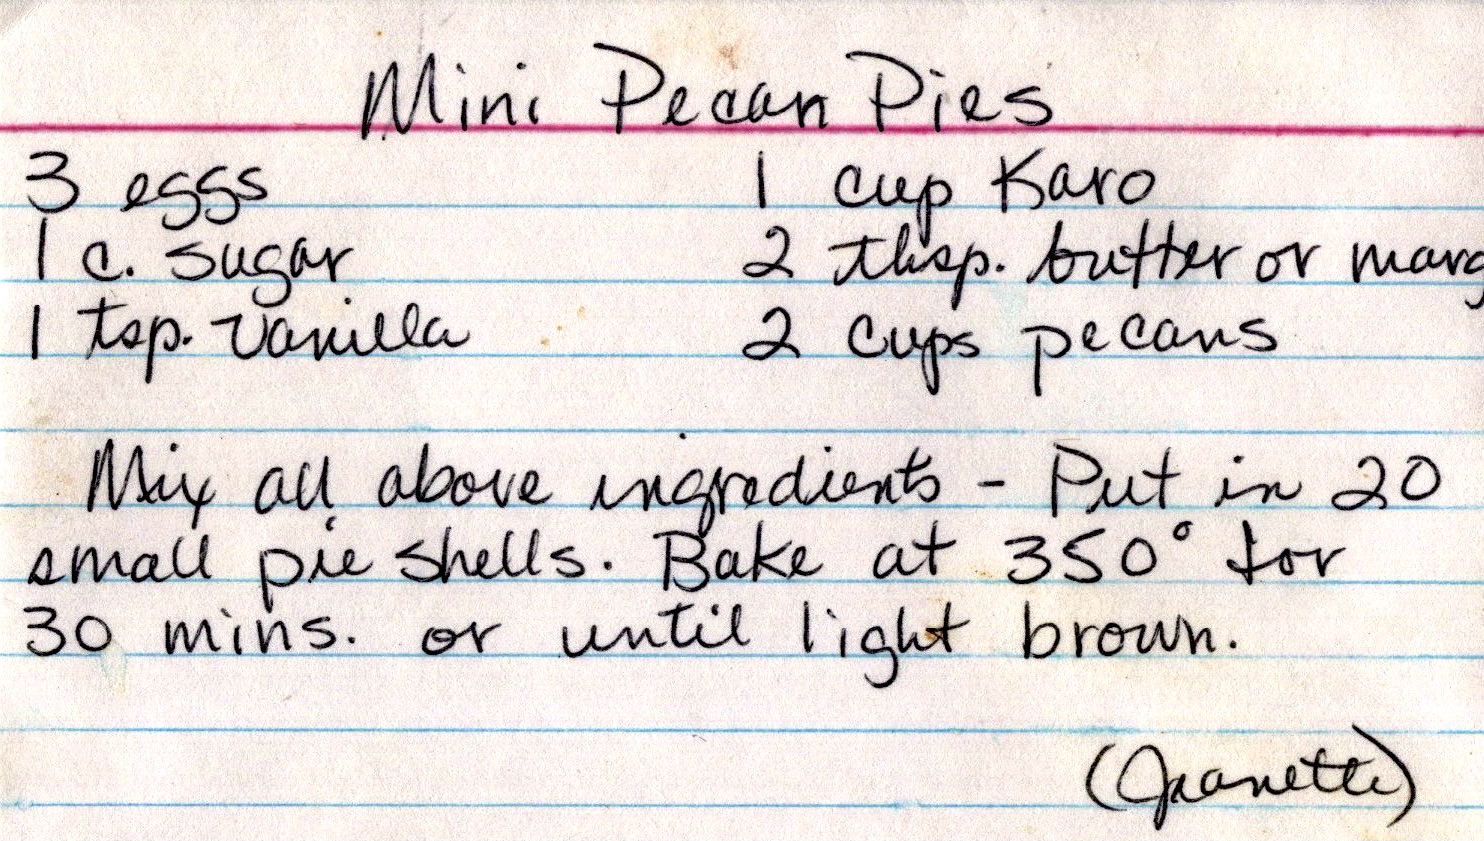 Mini Pecan Pies
3 eggs 1 cup Karo
1 c. sugar 2 tbsp. butter or marg
1 tsp. vanilla 2 cups pecans
Mix all above ingredients - Put in 20
small pie shells. Bake at 350° for
30 mins. or until light brown.
(Jeanette)